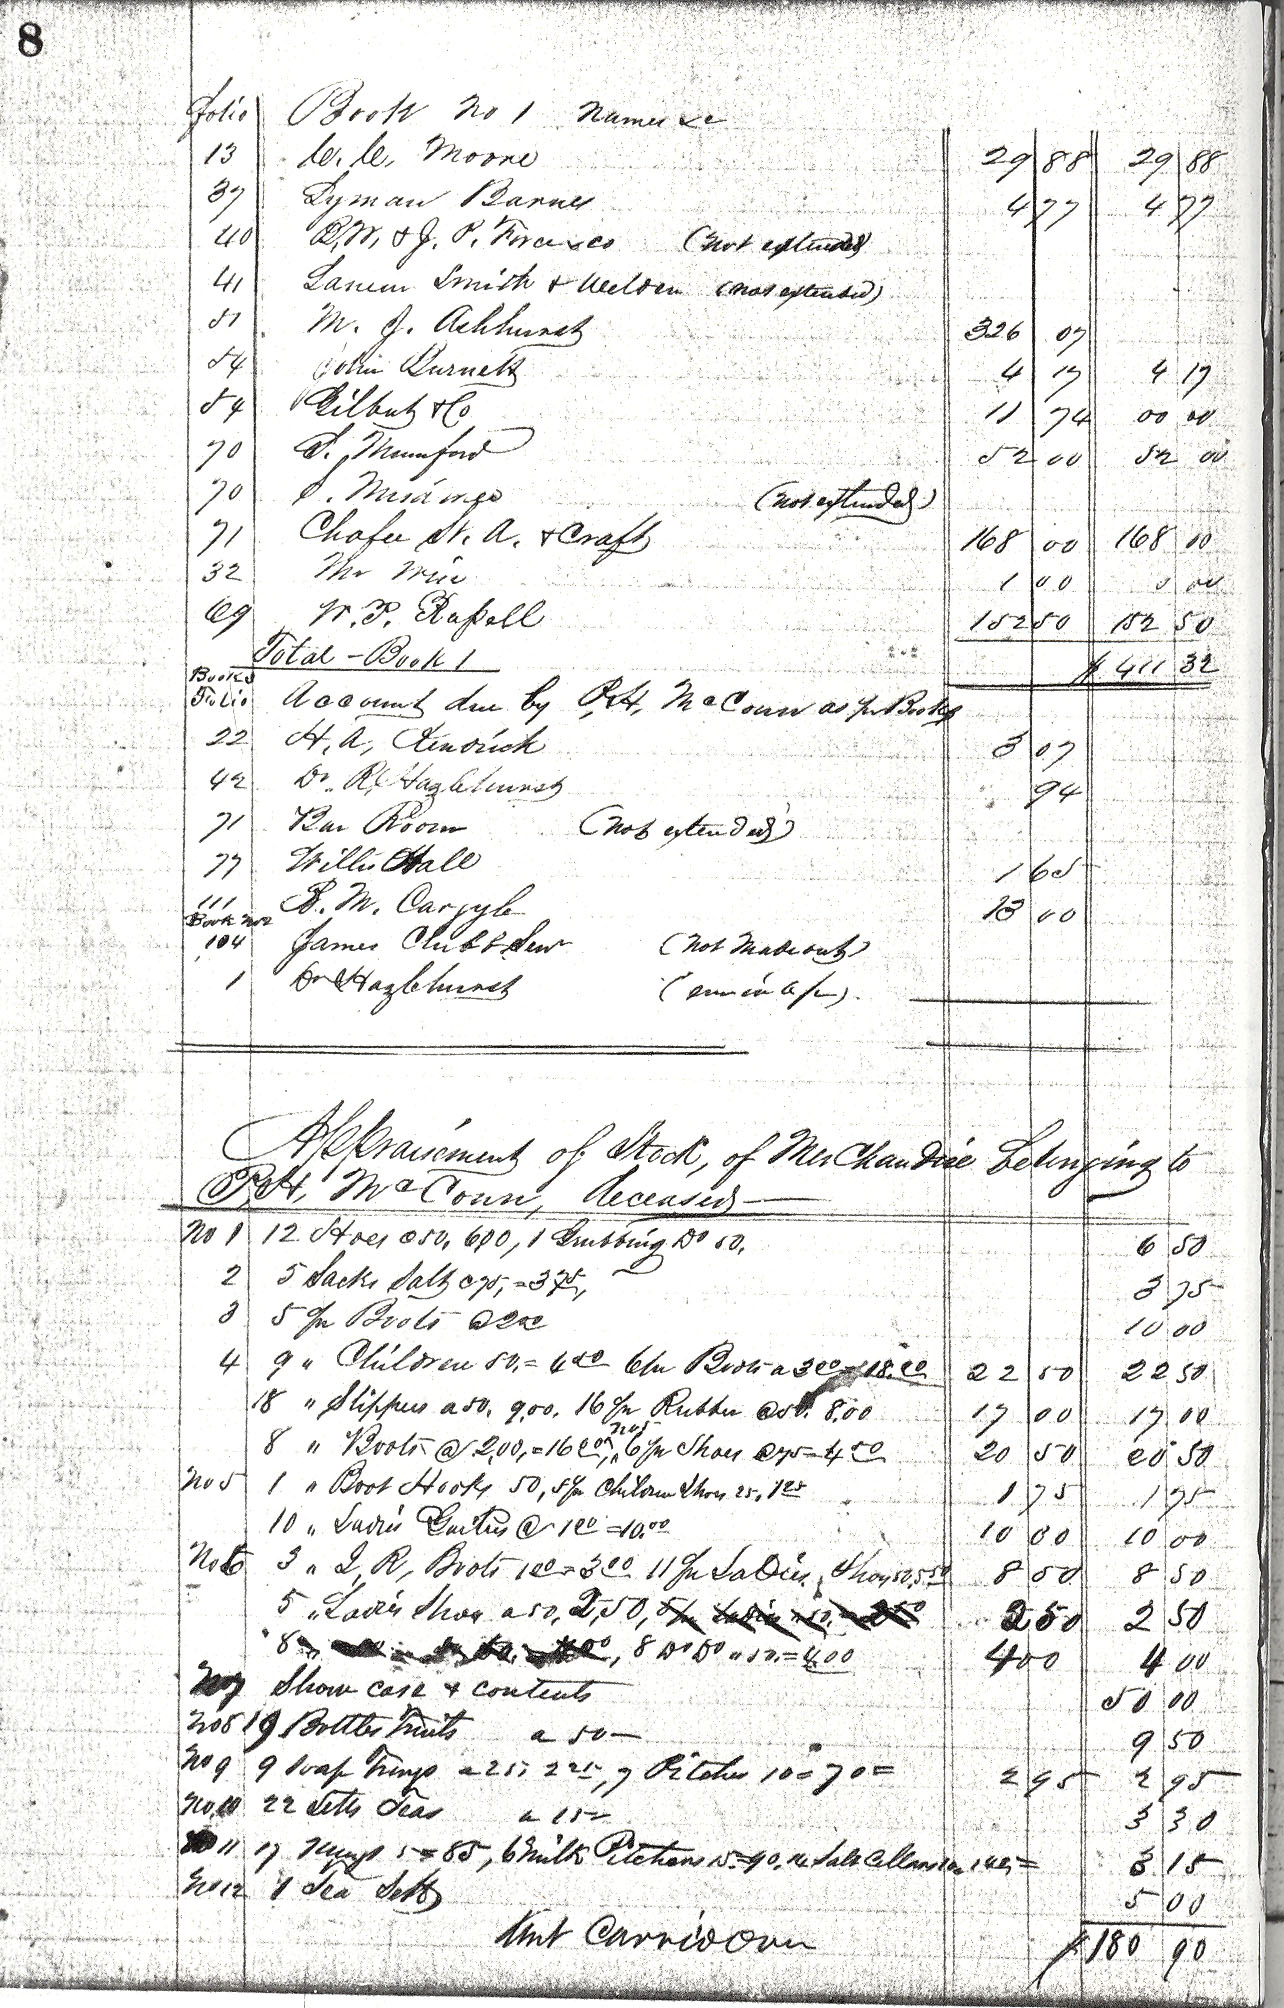 8
folio Book No 1 Names &c
13 C. C. Moore 29 88 29 88
37 Lyman Barnes 4 77 4 77
40 B. W. & J. P. Force & co (not extended)
41 Smith & (not extended)
51 M. J. Ashhurst 326 07
54 John Burnett 4 17 4 17
54 Gilbert & Co 11 74 00 00
70 S. Mumford 52 00 52 00
70 (not extended)
71 Chafee St. A. & Craft 168 00 168 00
32 Mr 1 00 0 00
69 W. P. Russell 152 50 152 50
Total - Book 1 $ 411 32
Books
Folio Account due by P. H. McCoun as pr Books
22 H. A. Kendrick 3 07
42 Dr. R. Hazlehurst 94
71 Bar Room (not extended)
77 Willis Hall 1 65
111 B. M. Cargyle 13 00
Book No 2
104 James Clubb Senr (not made out)
1 Dr Hazlehurst
Appraisement of Stock, of Merchandise belonging to
P. H. McCoun, deceased
No 1 12 Hoes @ 50, 600, 1 Grubbing Do 50. 6 50
2 5 Sacks Salt @ 75, = 3 75, 3 75
3 5 pr Boots @ 2 00 10 00
4 9 " Children 50. = 4 50 6 pr Boots a 3 00 = 18.00 22 50 22 50
18 " Slippers a 50. 9,00. 16 pr Rubber @ 50. 8,00 17 00 17 00
8 " Boots @ 2,00, = 16 00, No 5 6 pr Shoes @ 75 = 4 50 20 50 20 50
No 5 1 " Boot Hooks 50, 5 pr Children Shoes 25, 1 25 1 75 1 75
10 " Ladies Gaiters @ 1 00 = 10.00 10 00 10 00
No 6 3 " J. R. Boots 1 00 = 3 00 11 pr Ladies Shoes 50, 5 50 8 50 8 50
5 " Ladies Shoes a 50, 2,50, 2 50 2 50
8 " 8 Do Do " 50. = 4,00 4 00 4 00
No 7 Show case & contents 50 00
No 8 19 Bottles Fruits a 50 9 50
No 9 9 Soap a 25, 2 25, 7 Pitchers 10 = 70 = 2 95 2 95
No. 10 22 Setts Teas a 15 3 30
No 11 17 Mugs 5 = 85, 6 Milk Pitchers 15 = 90, 14 Salt Cellars 10, 1 40 = 3 15
No 12 1 Tea Sett 5 00
Amt Carrid Over $ 180 90